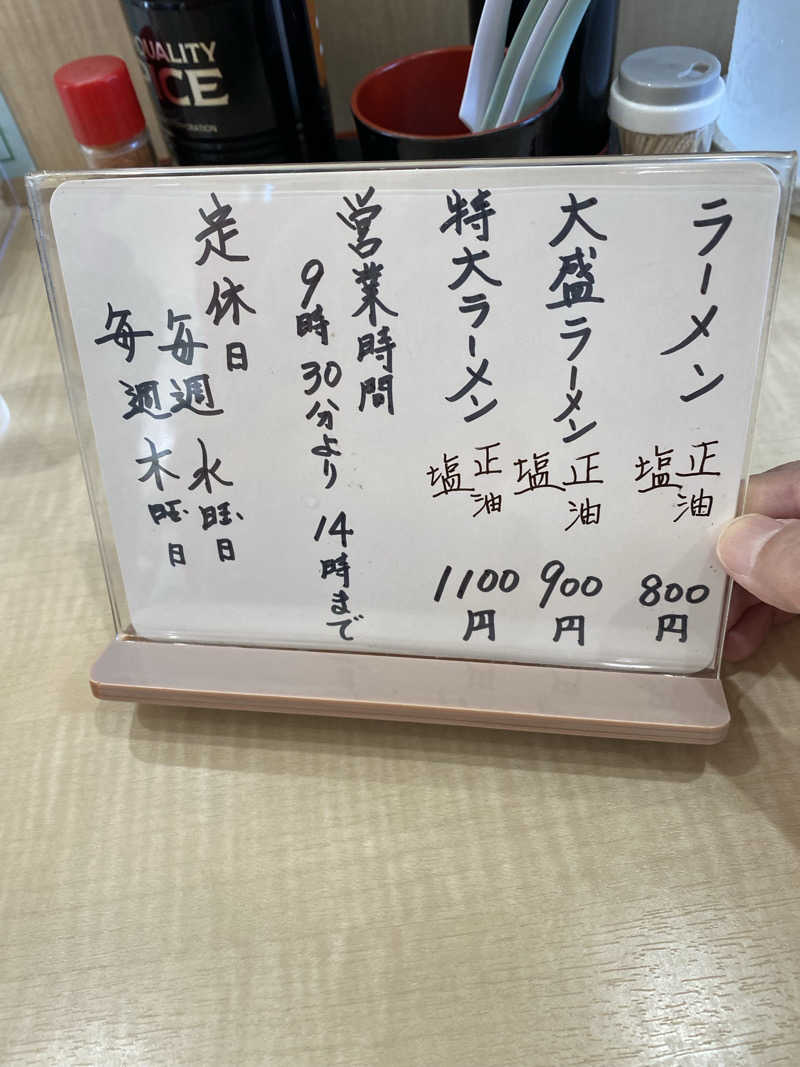 ラーメン 正油 塩 800円
大盛ラーメン 正油 塩 900円
特大ラーメン 正油 塩 1100円
営業時間
9時30分より 14時まで
定休日
毎週 水曜日
毎週 木曜日
QUALITY